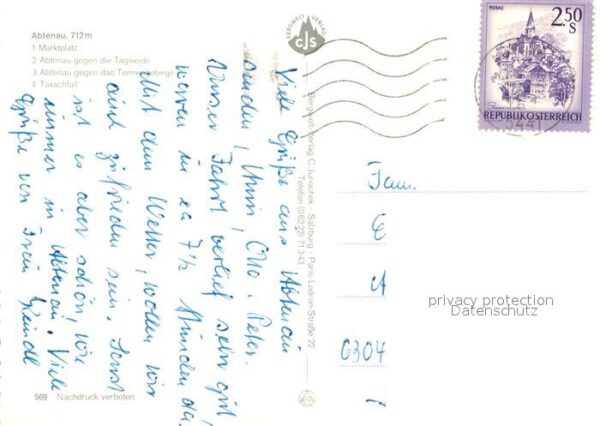 Abtenau, 712m
1 Marktplatz
2 Abtenau gegen die Tagweide
3 Abtenau gegen das Tennengebirge
4 Taxachfall
BERGWELT VERLAG
cjs
MURAU
2.50
S
REPUBLIK ÖSTERREICH
5441
Viele Grüße aus Abtenau
senden, Otto, Peter.
Unser Fahrt verlief sehr gut,
waren in ca 7½ Stunden da.
Mit dem Wetter, wollen wir
auch zufrieden sein. Sonst
ist es aber schön, wie
immer in Abtenau. Viele
Grüße von Frau
Bergwelt-Verlag C. Jurischek · Salzburg · Paris-Lodron-Straße 22
Telefon (06222) 71343
Fam.
E
A
6304
privacy protection
Datenschutz
569 Nachdruck verboten